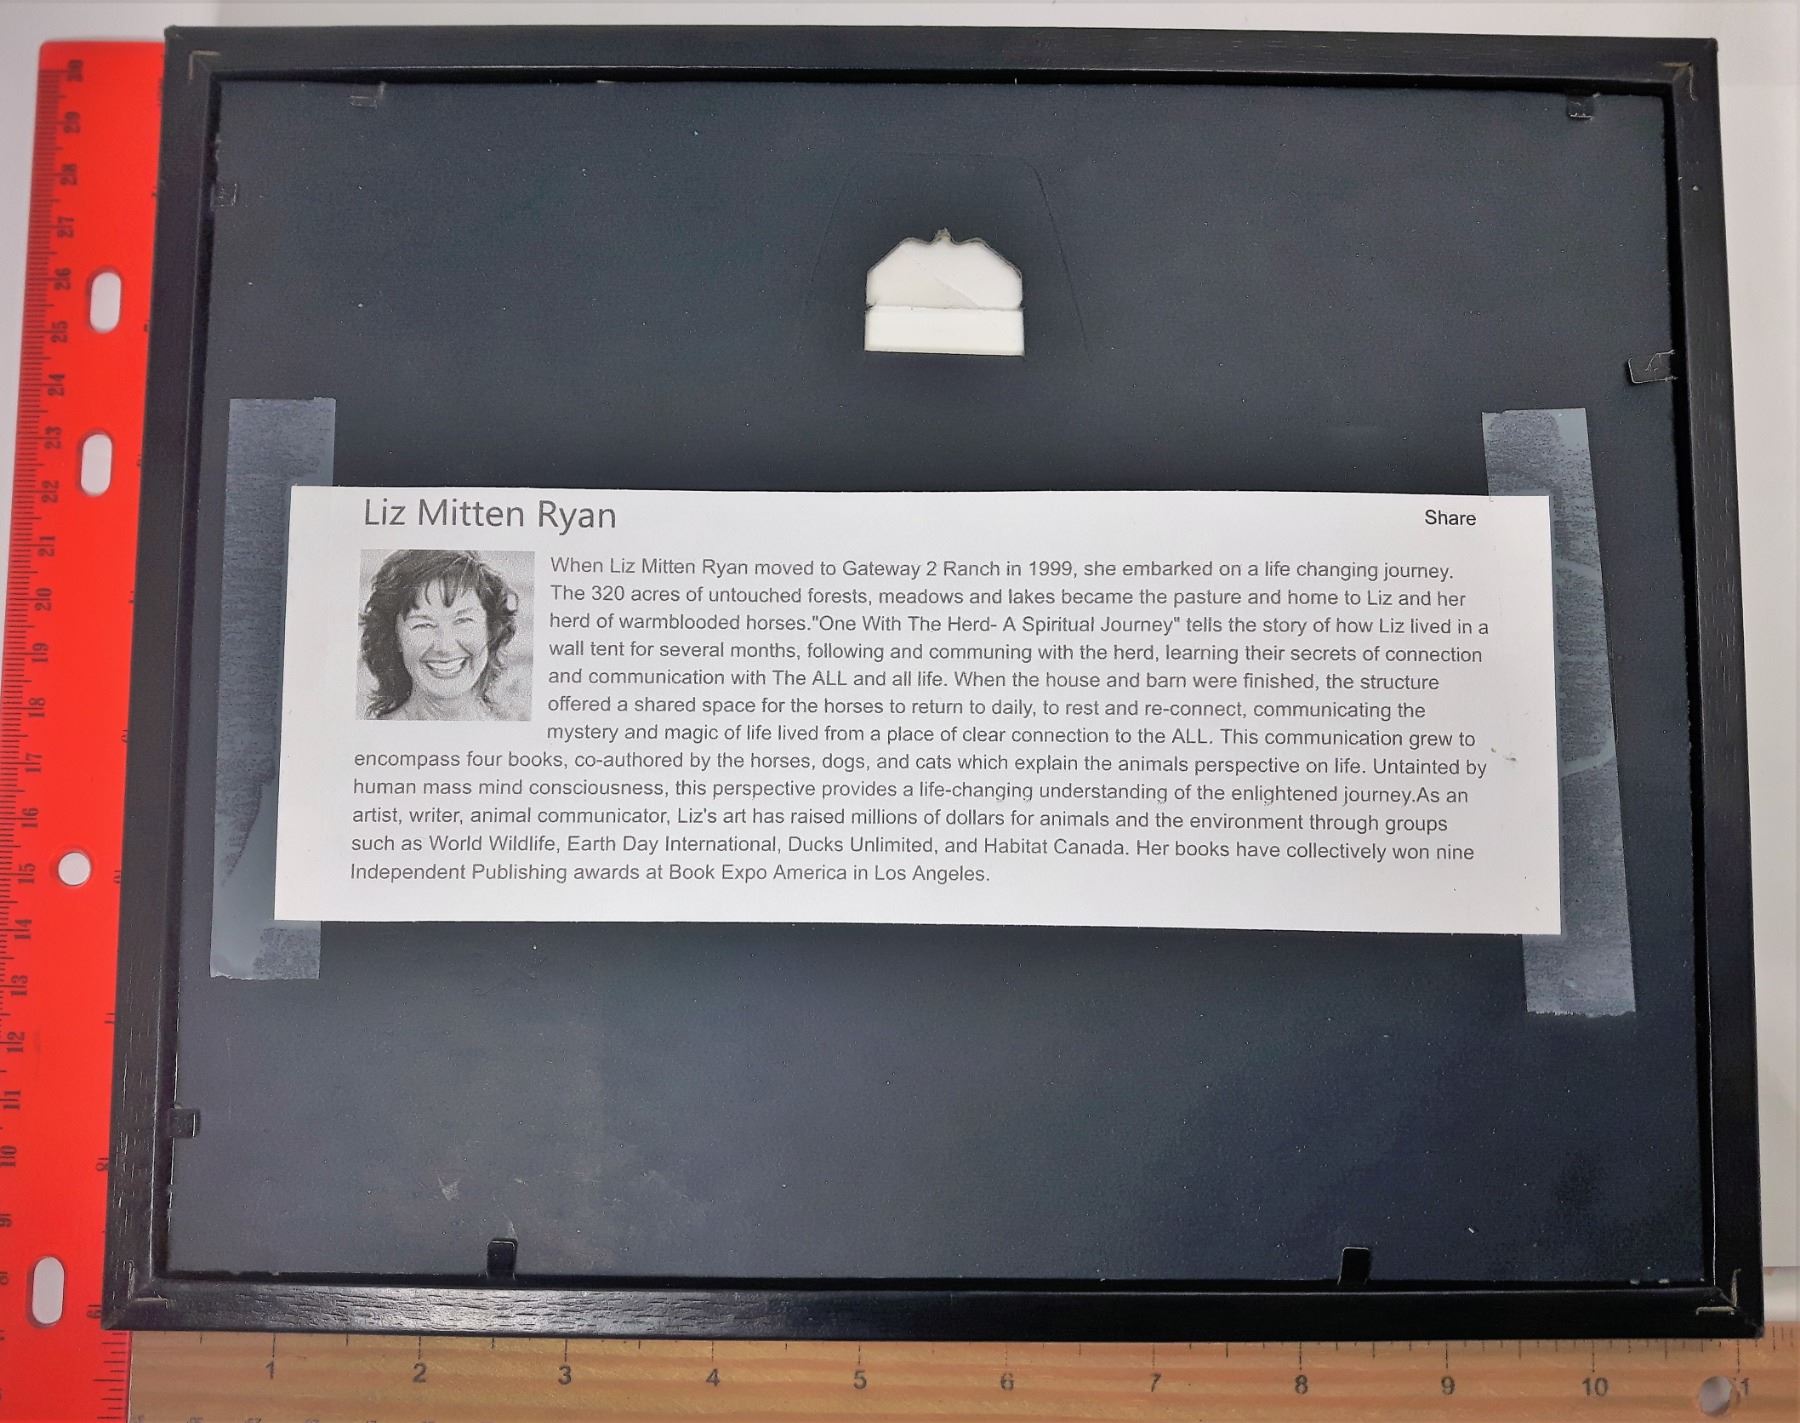 Liz Mitten Ryan
Share
When Liz Mitten Ryan moved to Gateway 2 Ranch in 1999, she embarked on a life changing journey.
The 320 acres of untouched forests, meadows and lakes became the pasture and home to Liz and her
herd of warmblooded horses."One With The Herd- A Spiritual Journey" tells the story of how Liz lived in a
wall tent for several months, following and communing with the herd, learning their secrets of connection
and communication with The ALL and all life. When the house and barn were finished, the structure
offered a shared space for the horses to return to daily, to rest and re-connect, communicating the
mystery and magic of life lived from a place of clear connection to the ALL. This communication grew to
encompass four books, co-authored by the horses, dogs, and cats which explain the animals perspective on life. Untainted by
human mass mind consciousness, this perspective provides a life-changing understanding of the enlightened journey.As an
artist, writer, animal communicator, Liz's art has raised millions of dollars for animals and the environment through groups
such as World Wildlife, Earth Day International, Ducks Unlimited, and Habitat Canada. Her books have collectively won nine
Independent Publishing awards at Book Expo America in Los Angeles.
30
29
28
27
26
25
24
23
22
21
20
19
18
17
16
15
14
13
12
11
10
9
1 2 3 4 5 6 7 8 9 10